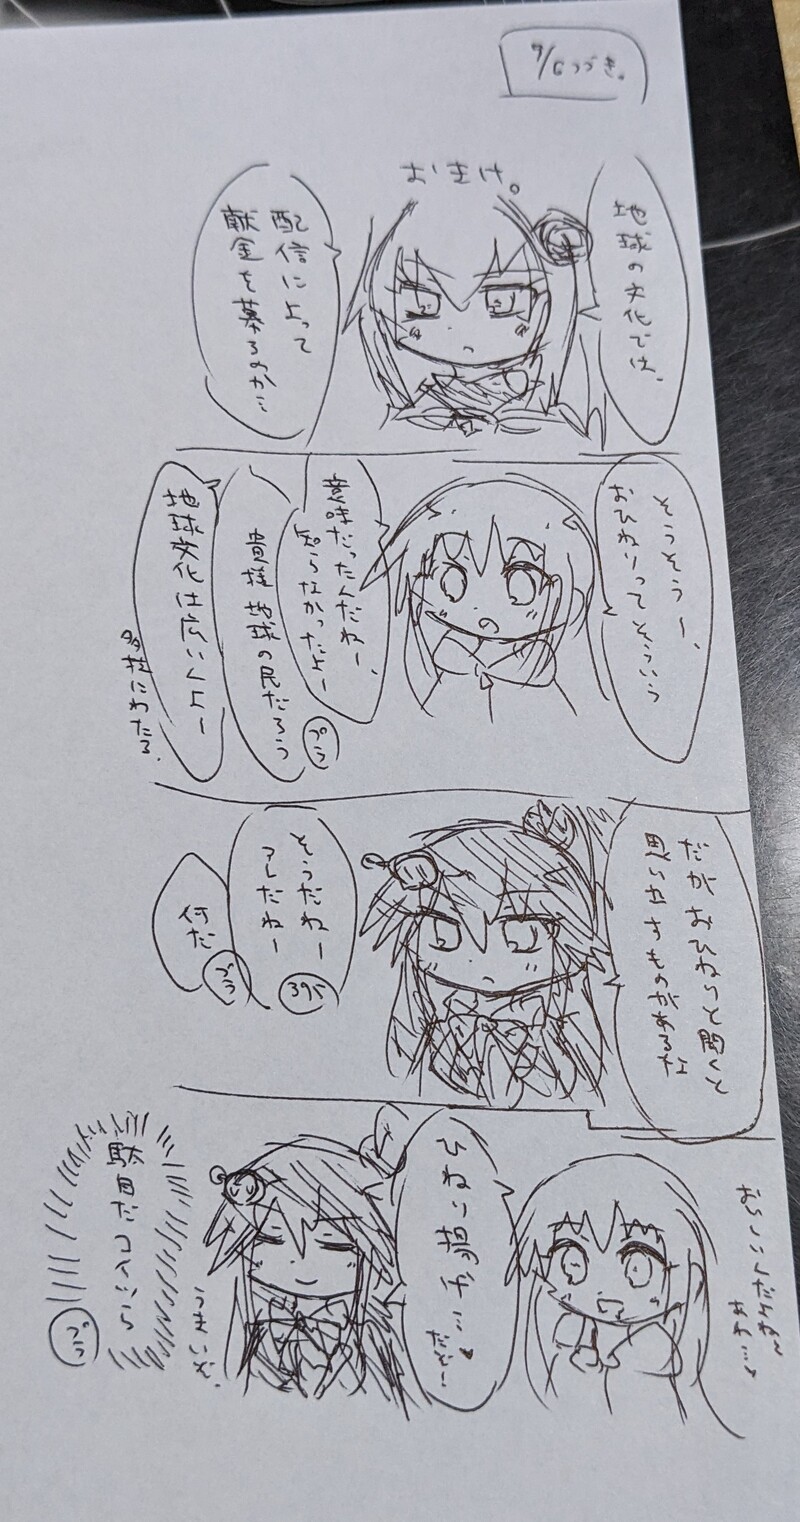 9/6つづき。
おまけ。
地球の文化では、
配信によって
献金を募るのか…
そうそう〜、
おひねりってそういう
意味だったんだねー、
知らなかったよー
貴様地球の民だろう
プラ
地球文化は広いんよー
多岐にわたる。
だがおひねりと聞くと
思い出すものがあるな
そうだねー
アレだねー
何だ
プラ
ひねり揚げ…♥
だぞ！
おいしいんだよね〜
うまいぞ。
駄目だコイツら
プラ